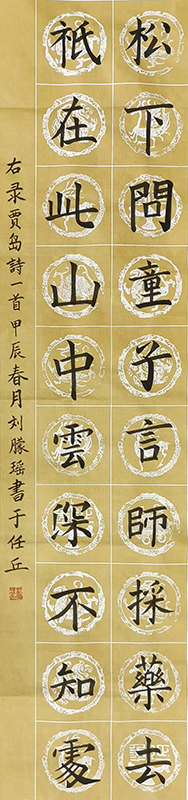 松下問童子言師採藥去
祇在此山中雲深不知處
右录贾岛詩一首甲辰春月刘朦瑶書于任丘